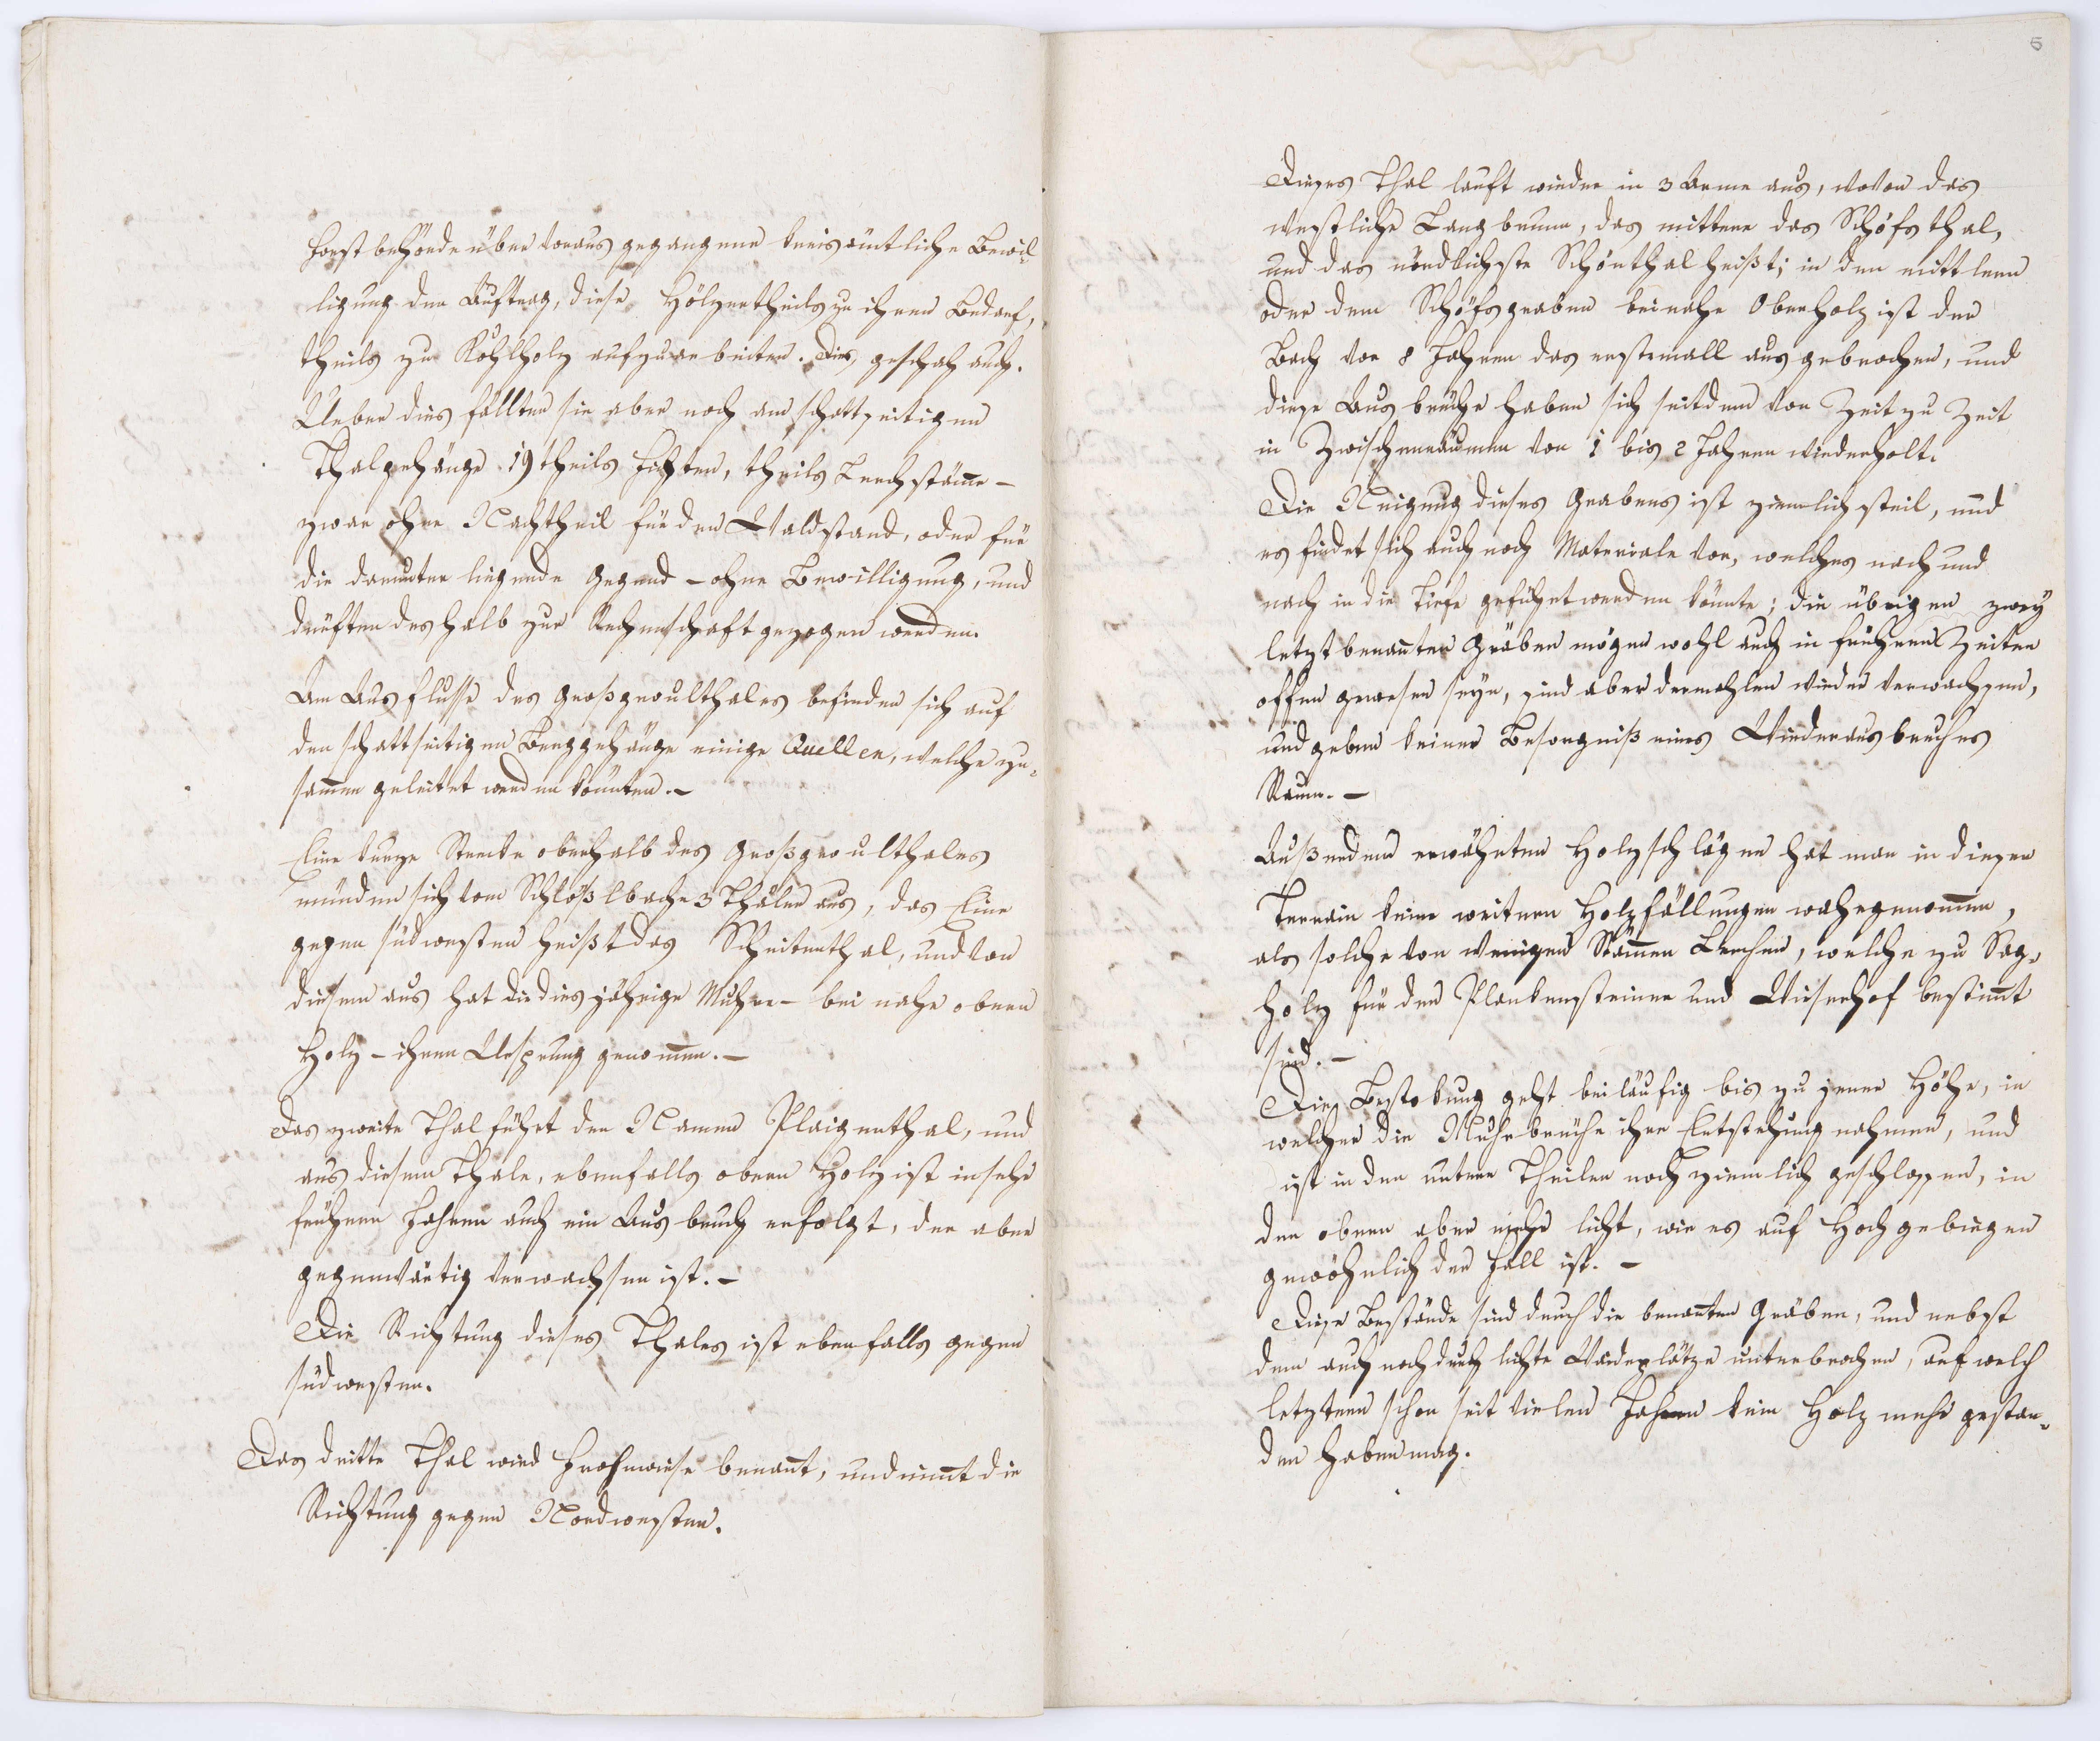 Forstbehörde über voraus gegangene kreisämtliche Bewil-
ligung den Auftrag, diese Hölzer theils zu ihrem Bedarf,
theils zu Kohlholz aufzuarbeiten. Dies geschah auch.
Ueber dies fällten sie aber noch am schattseitigen
Thalgehänge 19 theils Fichten, theils Lerchstäm̅e –
zwar ohne Nachtheil für den Waldstand, oder für
die darunter liegende Gegend – ohne Bewilligung, und
dürften deshalb zur Rechenschaft gezogen werden.
Am Ausflusse des Großgraulthales befinden sich auf
den schattseitigen Berggehänge einige Quellen, welche zu-
sam̅en geleitet werden könnten. –
Eine kurze Strecke oberhalb des Großgraulthales
münden sich vom Schlößlbache 3 Thäler aus, das Eine
gegen südwesten heißt das Scheitenthal, und von
diesem aus hat die diesjährige Muhre – bei nahe obern
Holz – ihren Ursprung genom̅en. –
Das zweite Thal führt den Namen Plaigenthal, und
aus diesem Thale, ebenfalls obern Holz ist in sehr
frühern Jahren auch ein Ausbruch erfolgt, der aber
gegenwärtig verwachsen ist. –
Die Richtung dieses Thales ist ebenfalls gegen
südwesten.
Das dritte Thal wird Frohnwiese benan̅t, und nim̅t die
Richtung gegen Nordwesten.
5
Dieses Thal lauft wieder in 3 Arme aus, wovon das
westliche Langbrunn, das mittere das Schöfsthal,
und das nördlichste Schönthal heißt; in den mittlern
oder dem Schöfsgraben beinahe Oberholz ist der
Bach vor 8 Jahren das erstemall ausgebrochen, und
diese Ausbrüche haben sich seitdem von Zeit zu Zeit
in Zwischenräumen von 1 bis 2 Jahren wiederholt.
Die Neigung dieses Grabens ist ziemlich steil, und
es findet sich auch noch Materiale vor, welches nach und
nach in die Tiefe geführt werden könnte; die übrigen zwey
letzt benan̅ten Gräben mögen wohl auch in frühern Zeiten
offen gewesen seyn, sind aber dermahlen wieder verwachsen,
und geben keiner Besorgniß eines Wiederausbruches
Raum. –
Außer dem erwähnten Holzschlägen hat man in diesen
Terrain keine weitern Holzfällungen wahrgenom̅en,
als solche von wenigen Stäm̅en Lerchen, welche zu Sag-
holz für den Plankensteiner und Wieserhof bestim̅t
sind. –
Die Bestokung geht beiläufig bis zu jener Höhe, in
welcher die Muhrbrüche ihre Entstehung nahmen, und
ist in den untern Theilen noch ziemlich geschlossen, in
den obern aber mehr licht, wie es auf Hochgebirgen
gewöhnlich der Fall ist. –
Diese Bestände sind durch die benan̅ten Gräben, und nebst
dem auch noch durch lichte Waideplätze unterbrochen, auf welch
letztern schon seit vielen Jahren kein Holz mehr gestan-
den haben mag.